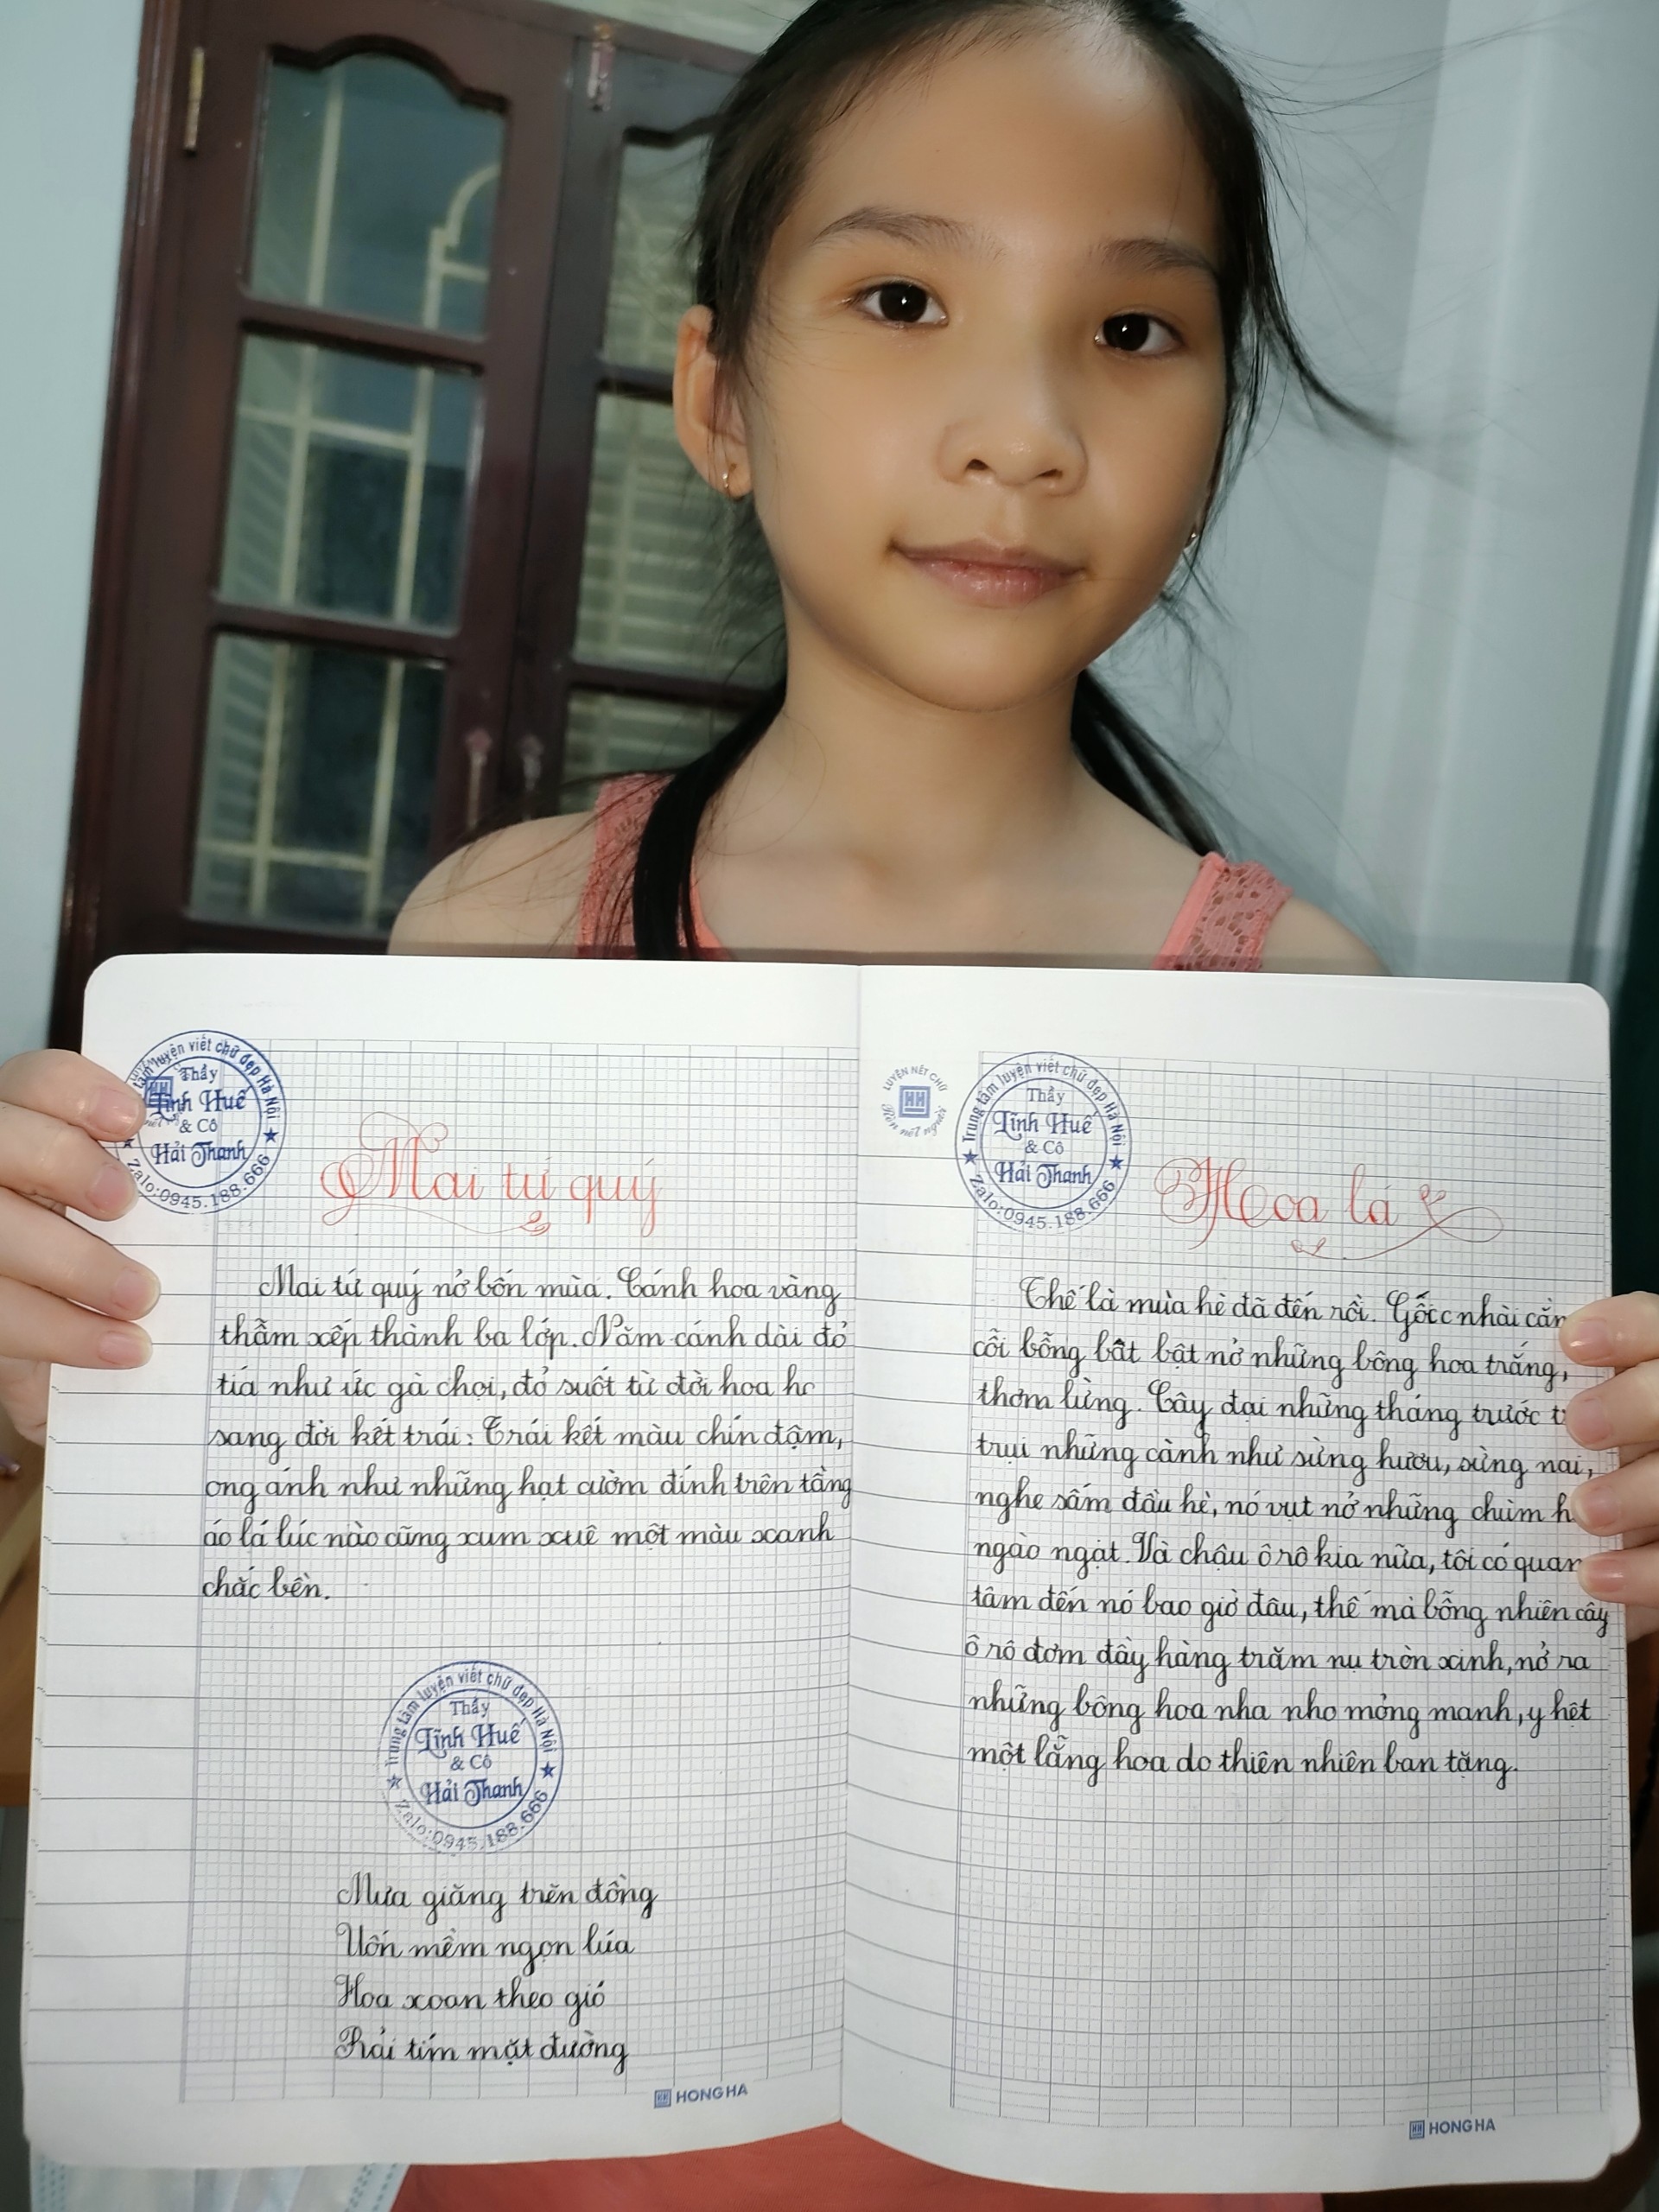 Trung tâm luyện viết chữ đẹp Hà Nội
Thầy
Tĩnh Huế
& Cô
Hải Thanh
Zalo:0945.188.666
Mai tứ quý
Mai tứ quý nở bốn mùa. Cánh hoa vàng
thẫm xếp thành ba lớp. Năm cánh dài đỏ
tía như ức gà chọi, đỏ suốt từ đời hoa
sang đời kết trái. Trái kết màu chín đậm,
óng ánh như những hạt cườm đính trên tầng
áo lá lúc nào cũng xum xuê một màu xanh
chắc bền.
Trung tâm luyện viết chữ đẹp Hà Nội
Thầy
Tĩnh Huế
& Cô
Hải Thanh
Zalo:0945.188.666
Mưa giăng trên đồng
Uốn mềm ngọn lúa
Hoa xoan theo gió
Rải tím mặt đường
HONG HA
LUYỆN NÉT CHỮ
Rèn nết người
Trung tâm luyện viết chữ đẹp Hà Nội
Thầy
Tĩnh Huế
& Cô
Hải Thanh
Zalo:0945.188.666
Hoa lá
Thế là mùa hè đã đến rồi. Gốc nhài cằn
cỗi bỗng bất bật nở những bông hoa trắng,
thơm lừng. Cây đại những tháng trước
trụi những cành như sừng hươu, sừng nai,
nghe sấm đầu hè, nó vụt nở những chùm
ngào ngạt. Và chậu ô rô kia nữa, tôi có quan
tâm đến nó bao giờ đâu, thế mà bỗng nhiên cây
ô rô đơm đầy hàng trăm nụ tròn xinh, nở ra
những bông hoa nha nho mỏng manh, y hệt
một lẵng hoa do thiên nhiên ban tặng.
HONG HA